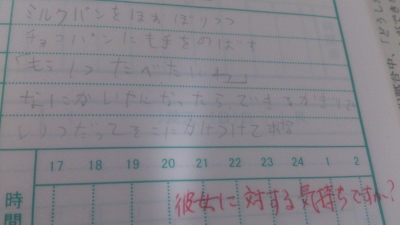 ミルクパンをほおばりつつ
チョコパンにも手をのばす
「もう1つたべたいわ」
なにか になったらできるかぎり
いつだってそこにかけつけて
17 18 19 20 21 22 23 24 1 2
時間
彼女に対する気持ちですか?